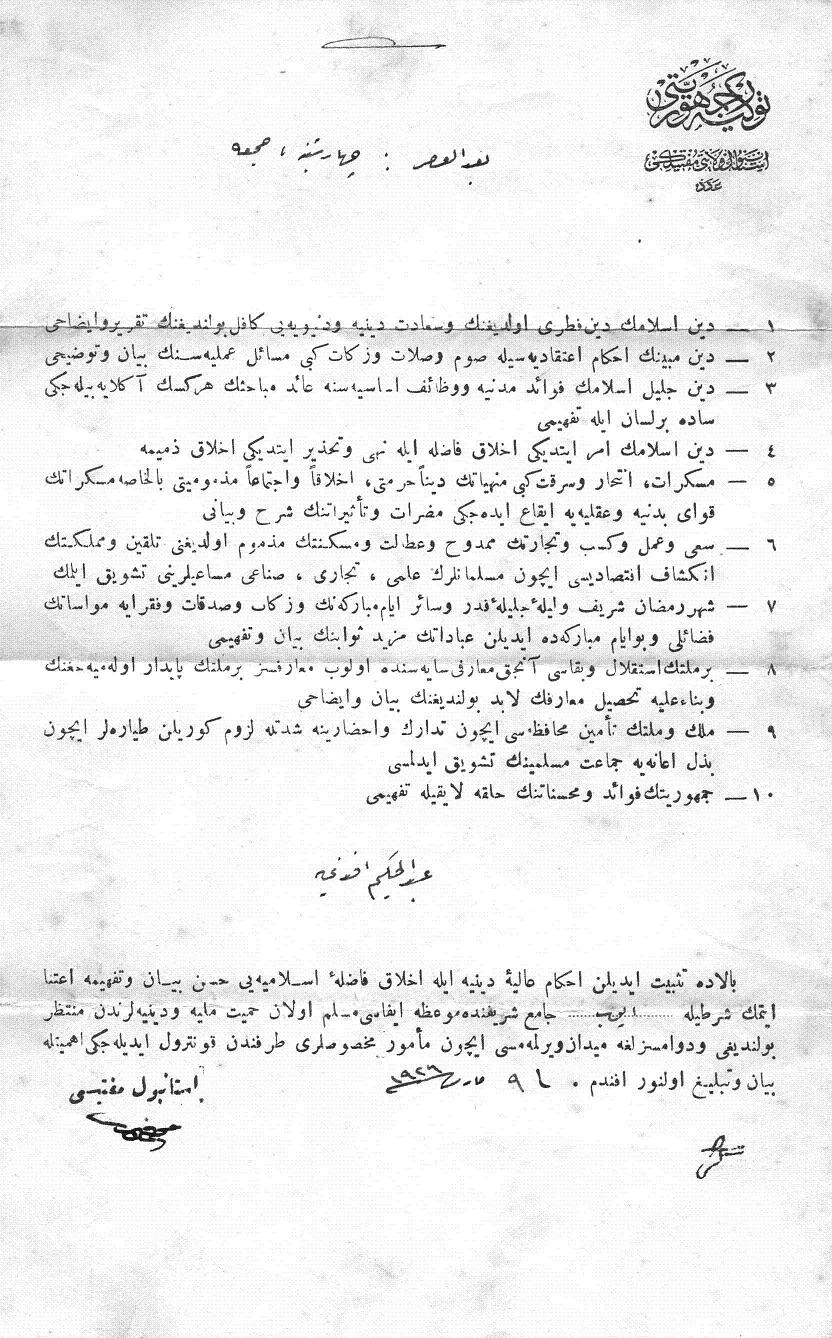 توركيه جمهوريتى
استانبول ولايتى مفتيلكى
عدد
بعد العصر : چهارشنبه ، جمعه
١ — دين اسلامك دين فطرى اولديغنك وسعادت دينيه ودنيويه يى كافل بولنديغنك تقرير وايضاحى
٢ — دين مبينك احكام اعتقاديه سيله صوم وصلات وزكات كبى مسائل عمليه سنك بيان وتوضيحى
٣ — دين جليل اسلامك فوائد مدنيه ووظائف اساسيه سنه عائد مباحثك هركسك آكلايه بيله جكى
ساده برلسان ايله تفهيمى
٤ — دين اسلامك امر ايتديكى اخلاق فاضله ايله نهى وتحذير ايتديكى اخلاق ذميمه
٥ — مسكرات، انتحار وسرقت كبى منهياتك ديناً حرمتى، اخلاقاً واجتماعاً مذموميتى بالخاصه مسكراتك
قواى بدنيه وعقليه يه ايقاع ايده جكى مضرات وتأثيراتنك شرح وبيانى
٦ — سعى وعمل وكسب وتجارتك ممدوح وعطالت ومسكنتك مذموم اولديغنى تلقين ومملكتك
انكشاف اقتصاديسى ايچون مسلمانلرك علمى ، تجارى ، صناعى مساعيلرينى تشويق ايلمك
٧ — شهر رمضان شريف وليلهٔ جليلهٔ قدر وسائر ايام مباركه نك وزكات وصدقات وفقرايه مواساتك
فضائلى وبوايام مباركه ده ايديلن عباداتك مزيد ثوابنك بيان وتفهيمى
٨ — برملتك استقلال وبقاسى آنجق معارفى سايه سنده اولوب معارفسز برملتك پايدار اوله ميه جغنك
وبناءعليه تحصيل معارفك لابد بولنديغنك بيان وايضاحى
٩ — ملك وملتك تأمين محافظه سى ايچون تدارك واحضارينه شدتله لزوم كوريلن طياره لر ايچون
بذل اعانه يه جماعت مسلمينك تشويق ايدلمسى
١٠ — جمهوريتك فوائد ومحسناتنك حلقه لايقيله تفهيمى
عبدالحكيم افندى يه
بالاده تثبيت ايديلن احكام عاليهٔ دينيه ايله اخلاق فاضلهٔ اسلاميه يى حسن بيان وتفهيمه اعتنا
ايتمك شرطيله ايوب جامع شريفنده موعظه ايفاسى مسلم اولان حميت مليه ودينيه لرندن منتظر
بولنديغى ودوامسزلغه ميدان ويرلمه مسى ايچون مأمور مخصوصلرى طرفندن قونترول ايديله جكى اهميتله
بيان وتبليغ اولنور افندم . ٩ مارت ١٩٢٦
استانبول مفتيسى